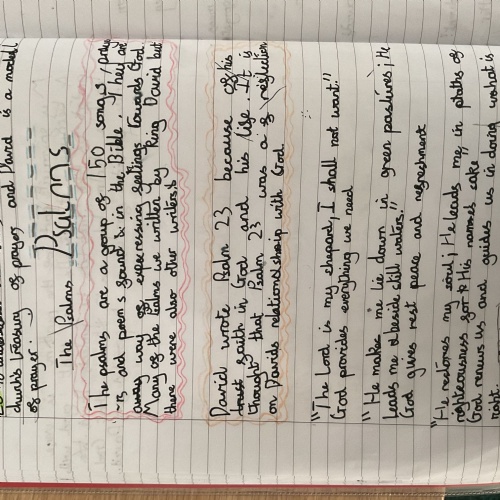 church's treasury of prayer and David is a model
of prayer.
The Psalms Psalms
The psalms are a group of 150 songs, prayer
-rs and poems found in the Bible. They are
a way of expressing feelings towards God.
Many of the Psalms we written by King David but
there were also other writers.
David wrote Psalm 23 because of his
trust faith in God and his life. It is
thought that Psalm 23 was a reflection
on Davids relationship with God.
"The Lord is my shepard, I shall not want."
God provides everything we need
"He makes me lie down in green pastures; He
leads me beside still waters."
God gives rest peace and refreshment
"He restores my soul; He leads me in paths of
righteousness for His names sake
God renews us and guides us in doing what is
right